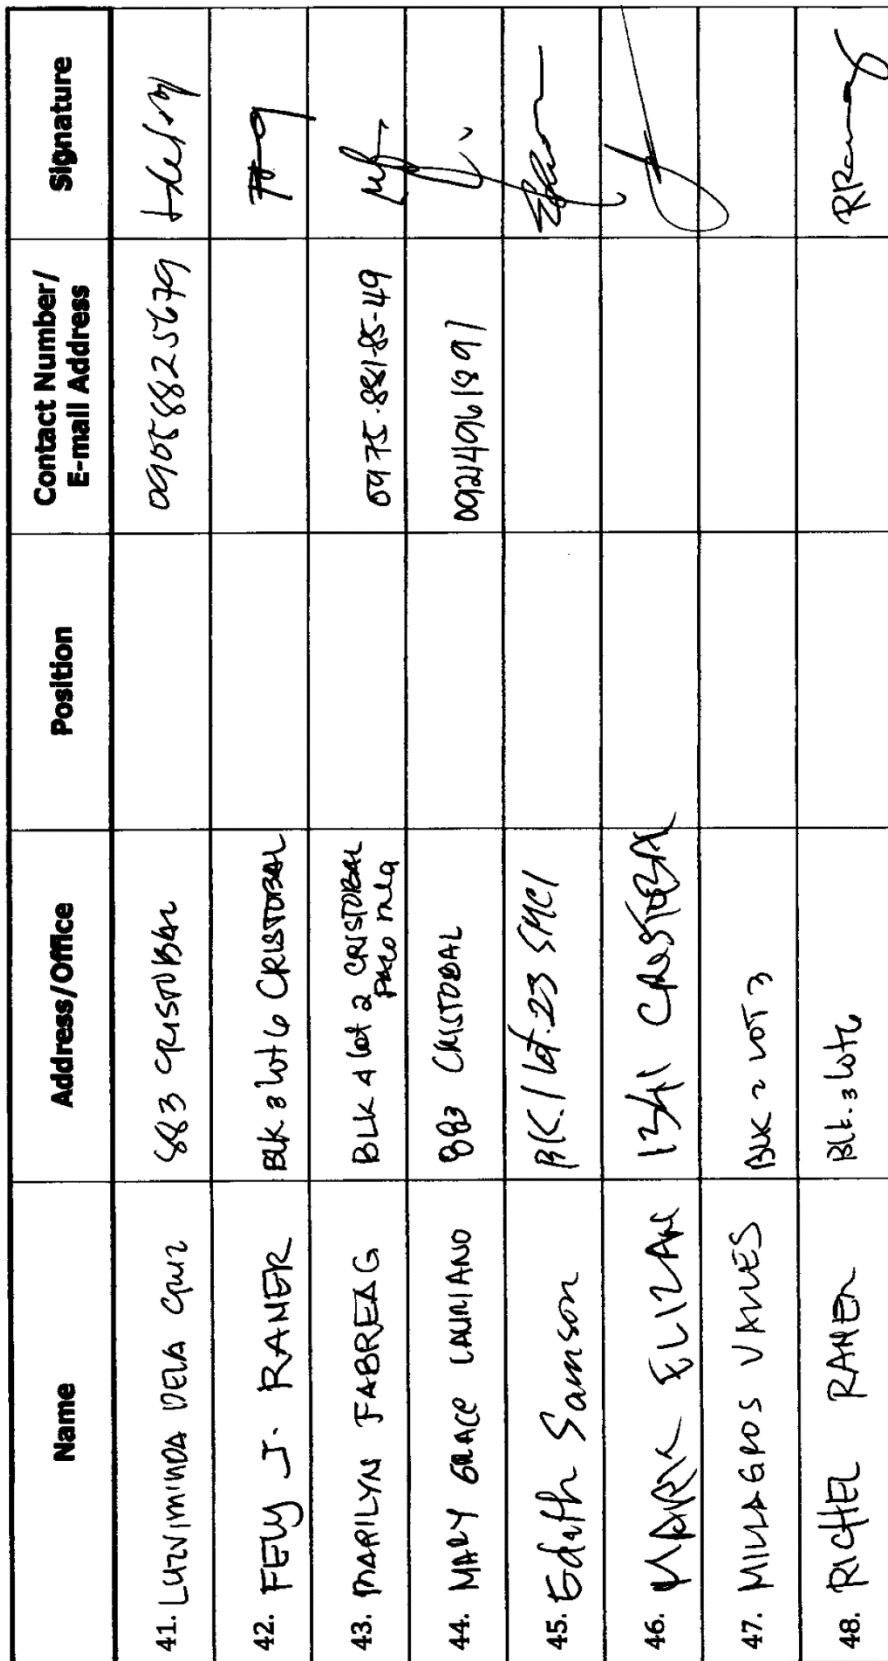 Name Address/Office Position Contact Number/ E-mail Address Signature
41. LUZVIMINDA DELA CRUZ 883 CRISTOBAL 09058825679
42. FELY J. RAMER BLK 3 Lot 6 CRISTOBAL
43. MARILYN FABREAG BLK 4 Lot 2 CRISTOBAL 0975-881-85-49
PACO mla
44. MARY GRACE LAURIANO 883 CRISTOBAL 09214961891
45. Edith Samson BLK. 1 Lot. 23 SMCI
46. MARK ELIZAN 1341 CRISTOBAL
47. MILLAGROS VALLES BLK 2 LOT 3
48. RICHEL RAMER Blk. 3 Lot 6